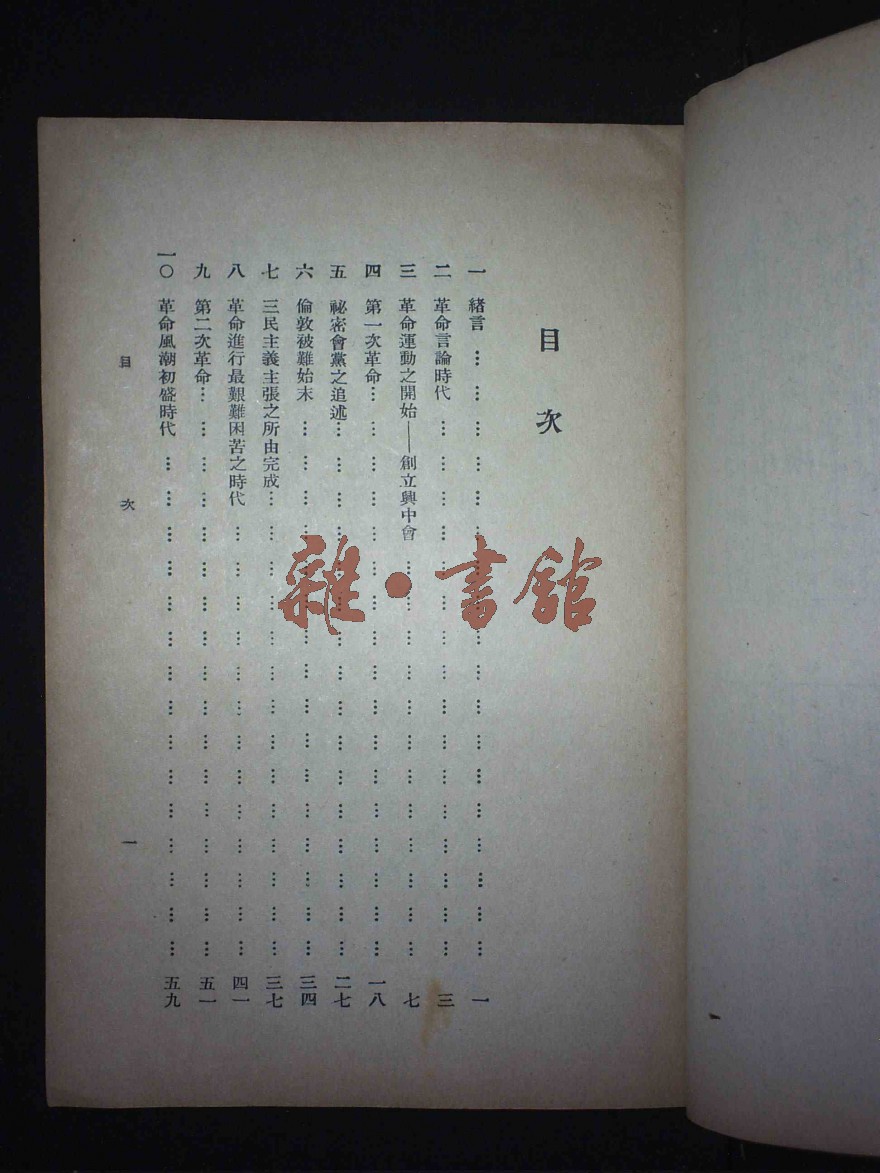 目次
一 緒言 … … … … … … … … … … … … … … … … … … 一
二 革命言論時代 … … … … … … … … … … … … … … … … 三
三 革命運動之開始——創立興中會 … … … … … … … … … … … … 七
四 第一次革命 … … … … … … … … … … … … … … … … … 一八
五 祕密會黨之追述 … … … … … … … … … … … … … … … … 二七
六 倫敦被難始末 … … … … … … … … … … … … … … … … 三四
七 三民主義主張之所由完成 … … … … … … … … … … … … … … 三七
八 革命進行最艱難困苦之時代 … … … … … … … … … … … … … 四一
九 第二次革命 … … … … … … … … … … … … … … … … … 五一
一〇 革命風潮初盛時代 … … … … … … … … … … … … … … … 五九
目次 一
雜·書館